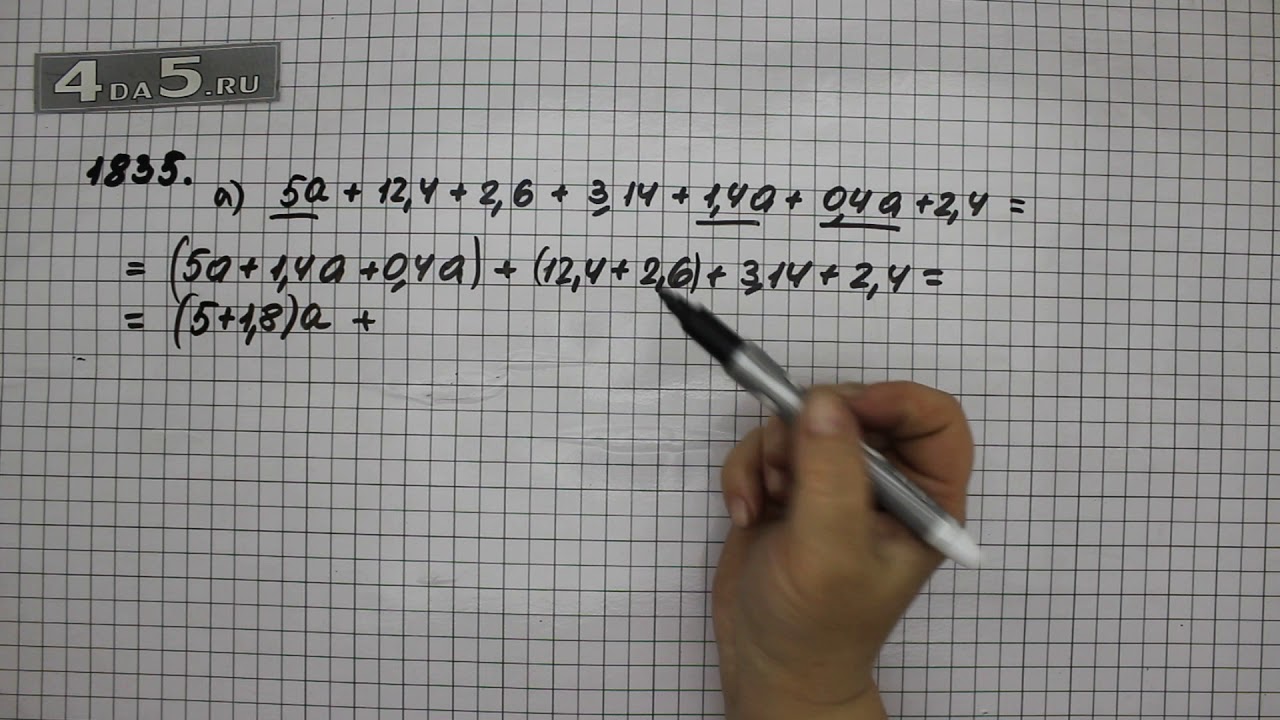 4ДА5.RU
1835.
а) 5а + 12,4 + 2,6 + 3,14 + 1,4а + 0,4а + 2,4 =
= (5а + 1,4а + 0,4а) + (12,4 + 2,6) + 3,14 + 2,4 =
= (5 + 1,8)а +